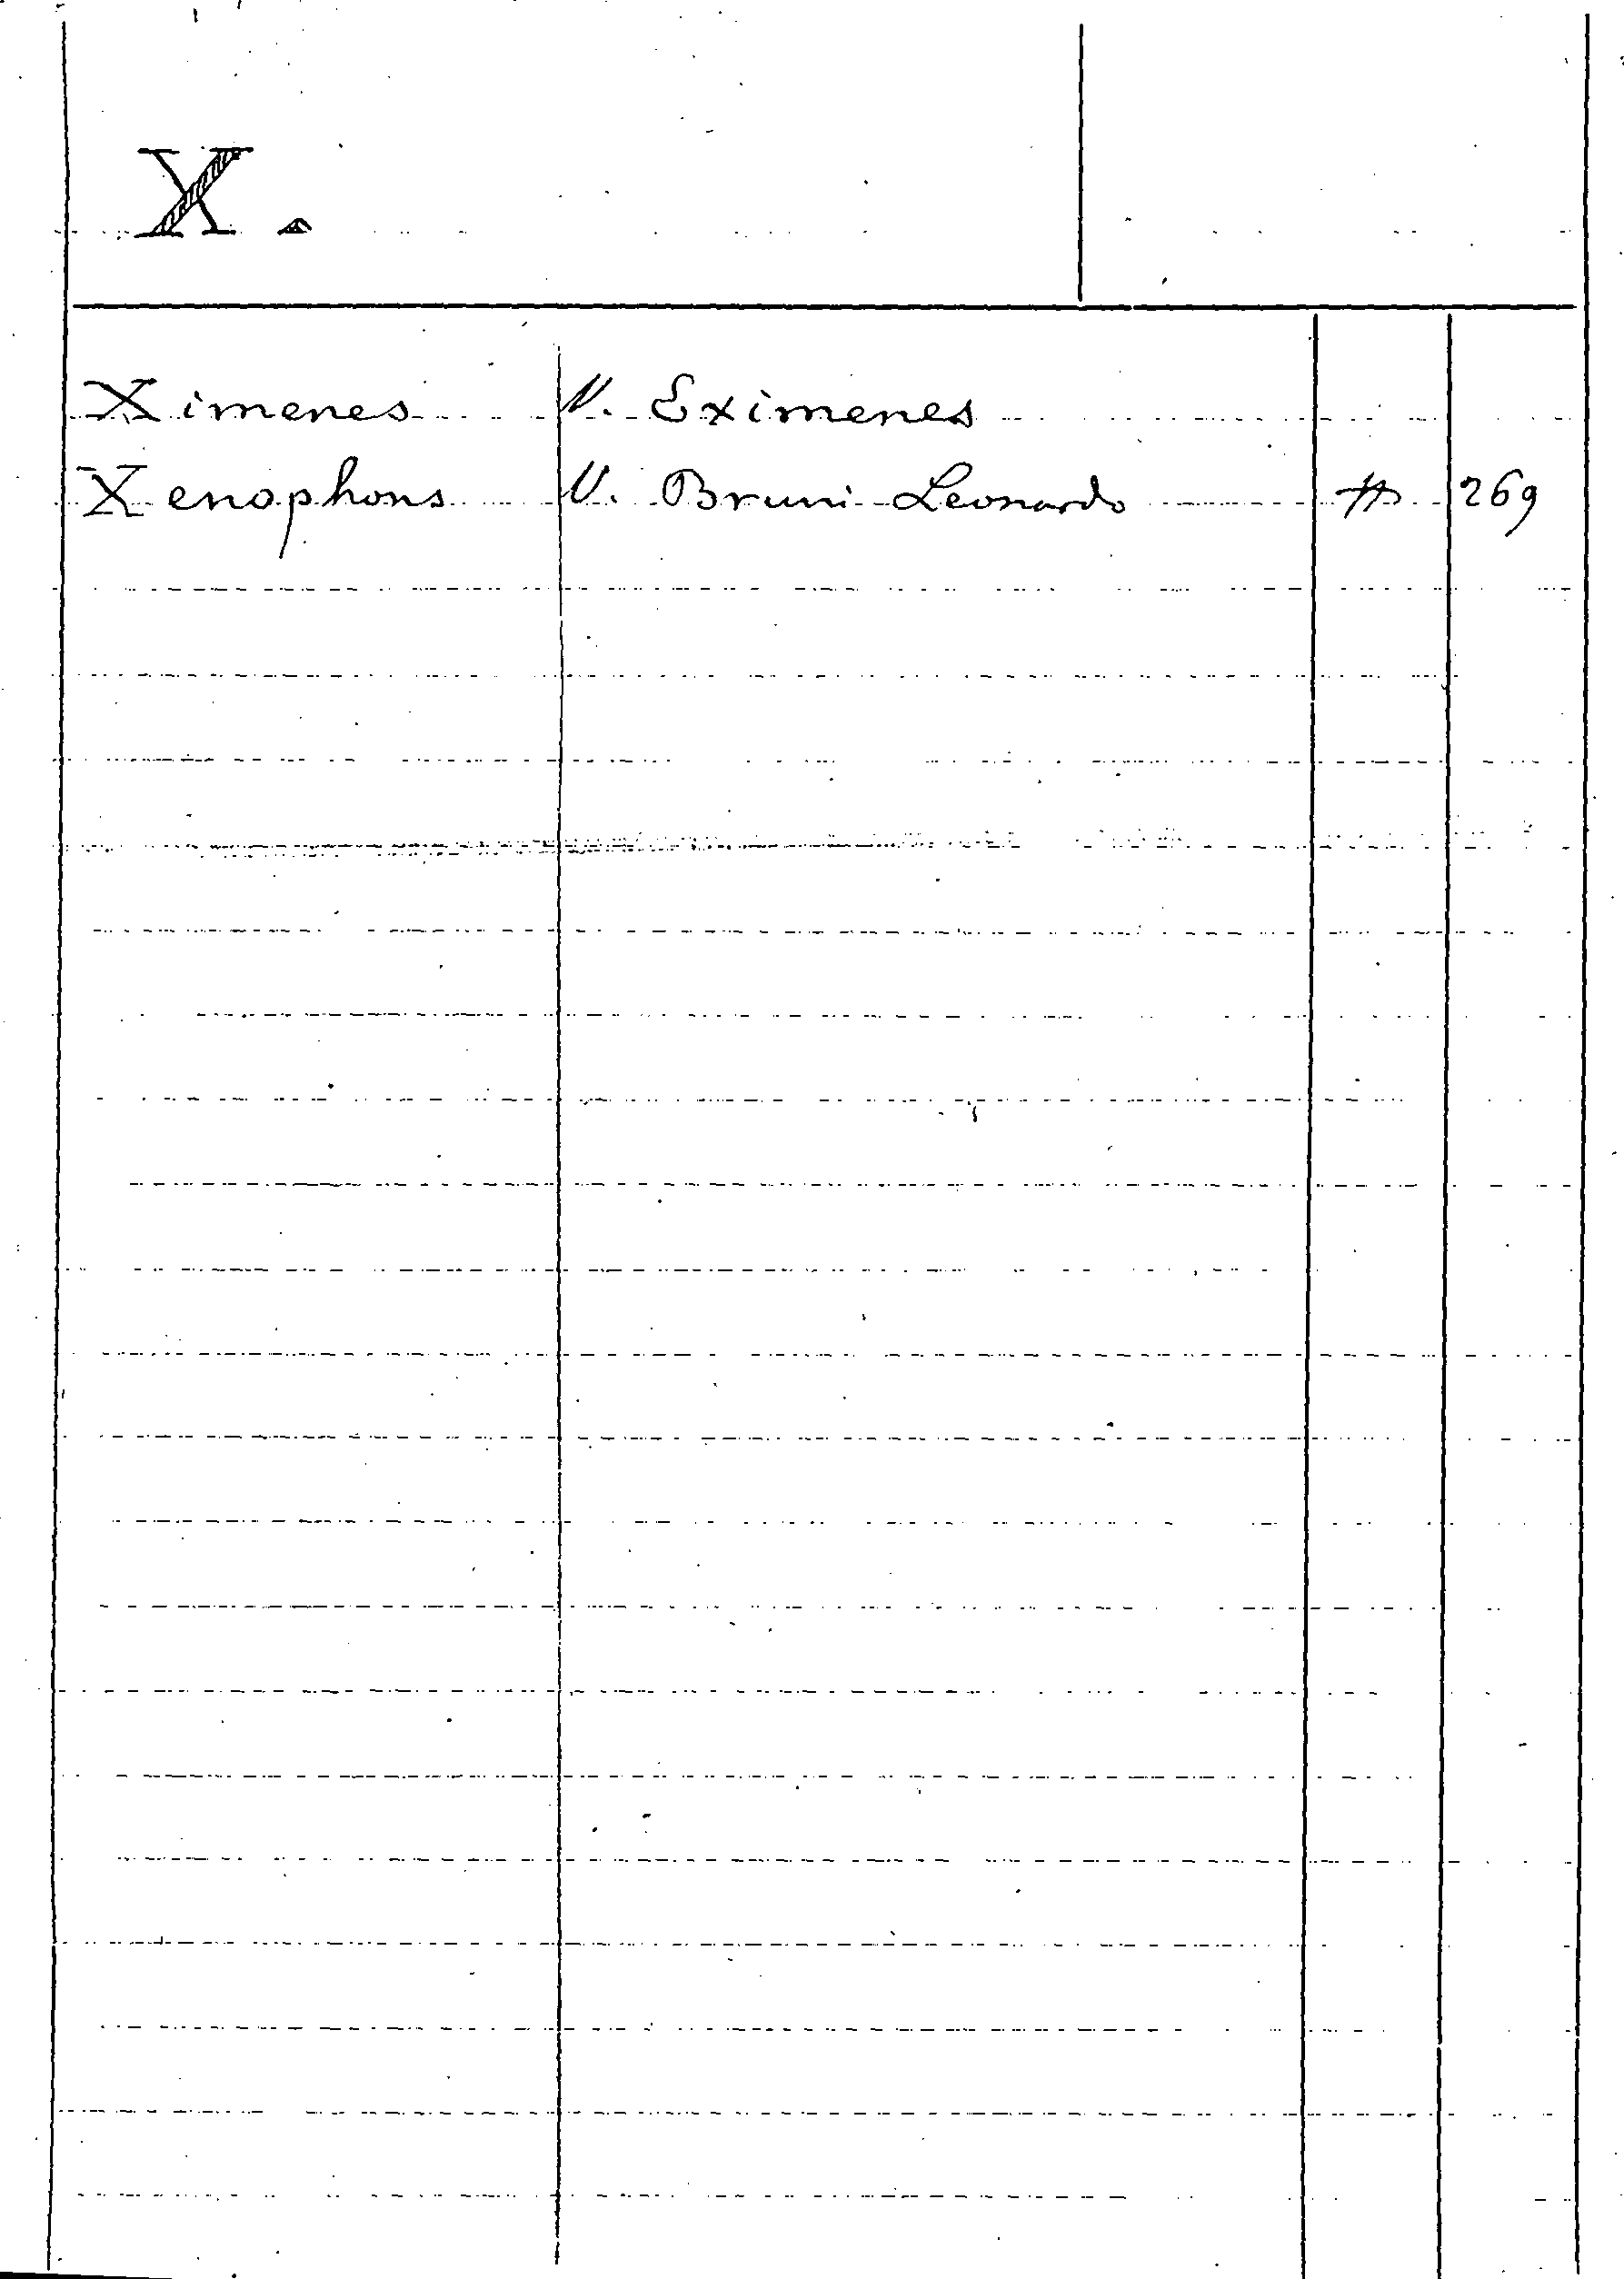 X.
Ximenes V. Eximenes
Xenophons V. Bruni Leonardo 269